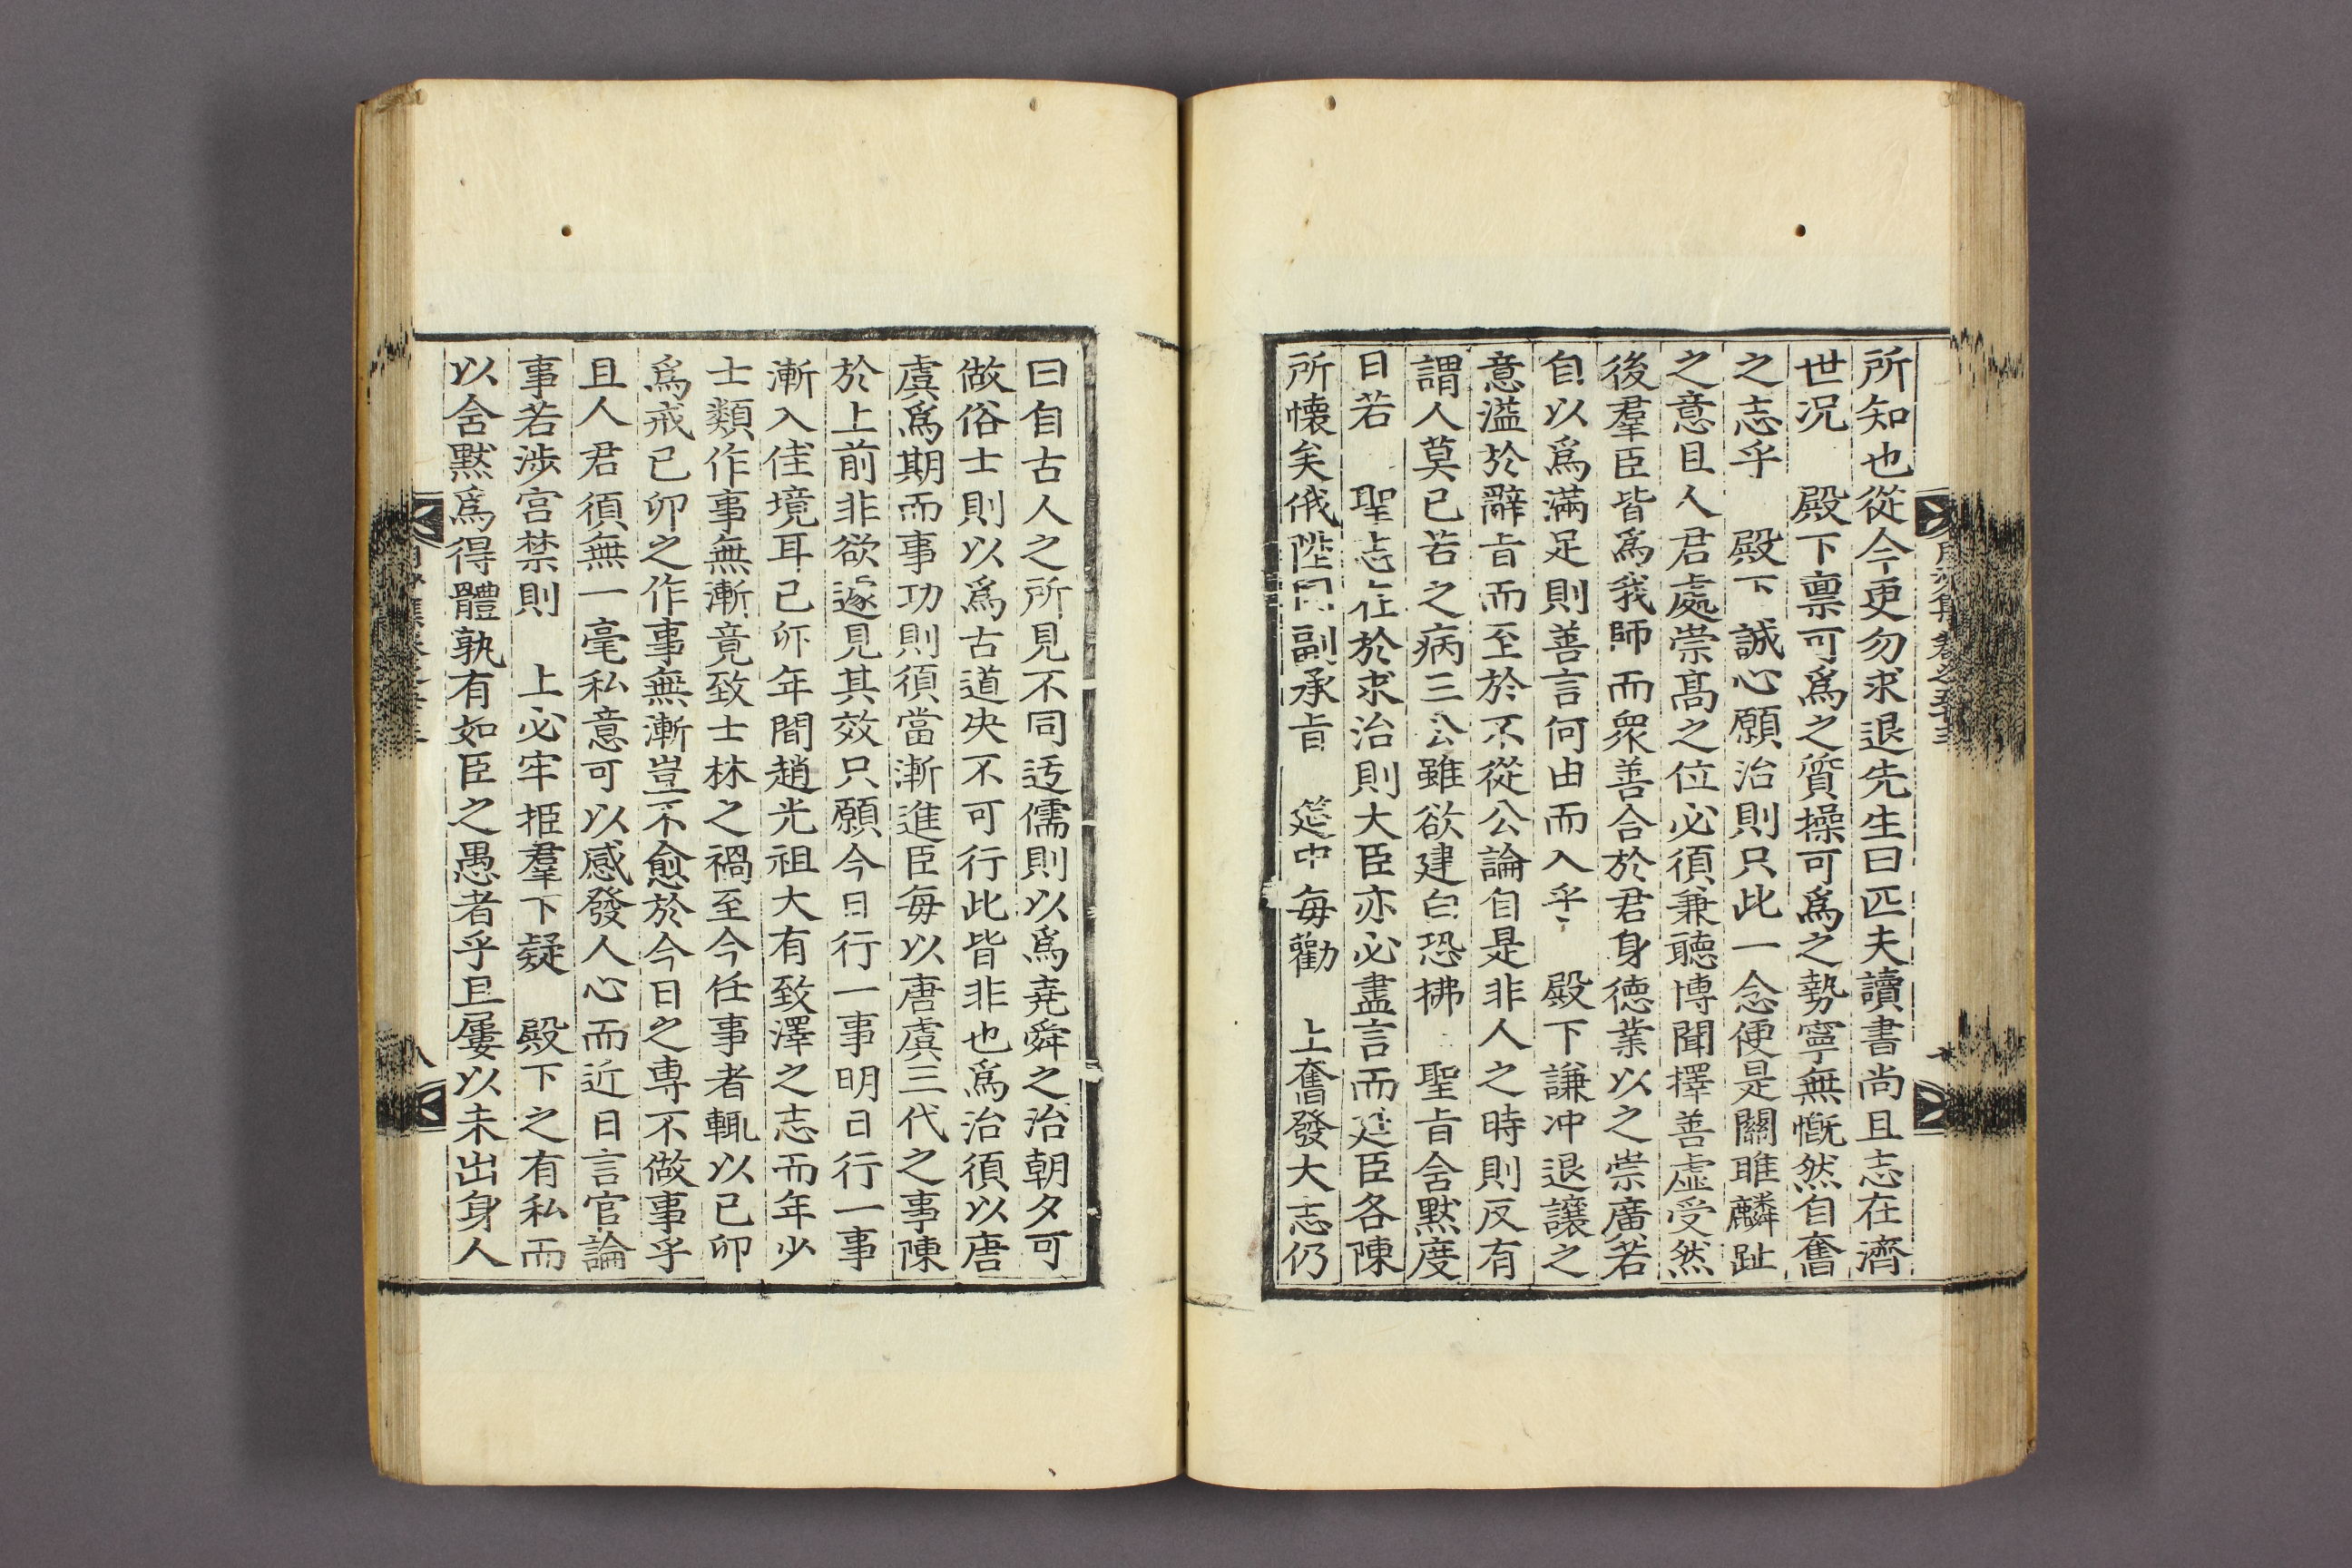 所知也從今更勿求退先生曰匹夫讀書尚且志在濟
世况　殿下禀可爲之質操可爲之勢寧無慨然自奮
之志乎　殿下誠心願治則只此一念便是關雎麟趾
之意且人君處崇髙之位必須兼聽博聞擇善虛受然
後羣臣皆爲我師而衆善合於君身德業以之崇廣若
自以爲滿足則善言何由而入乎　殿下謙冲退讓之
意溢於辭旨而至於不從公論自是非人之時則反有
謂人莫已若之病三公雖欲建白恐拂　聖旨含默度
日若　聖志在於求治則大臣亦必盡言而廷臣各陳
所懷矣俄陞副承旨　筵中每勸　上奮發大志仍
曰自古人之所見不同迃儒則以爲堯舜之治朝夕可
做俗士則以爲古道决不可行此皆非也爲治須以唐
虞爲期而事功則須當漸進臣每以唐虞三代之事陳
於上前非欲遽見其效只願今日行一事明日行一事
漸入佳境耳己卯年間趙光祖大有致澤之志而年少
士類作事無漸竟致士林之禍至今任事者輒以己卯
爲戒己卯之作事無漸豈不愈於今日之專不做事乎
且人君須無一毫私意可以感發人心而近日言官論
事若涉宮禁則　上必牢拒羣下疑　殿下之有私而
以含默爲得體孰有如臣之愚者乎且屢以未出身人
八